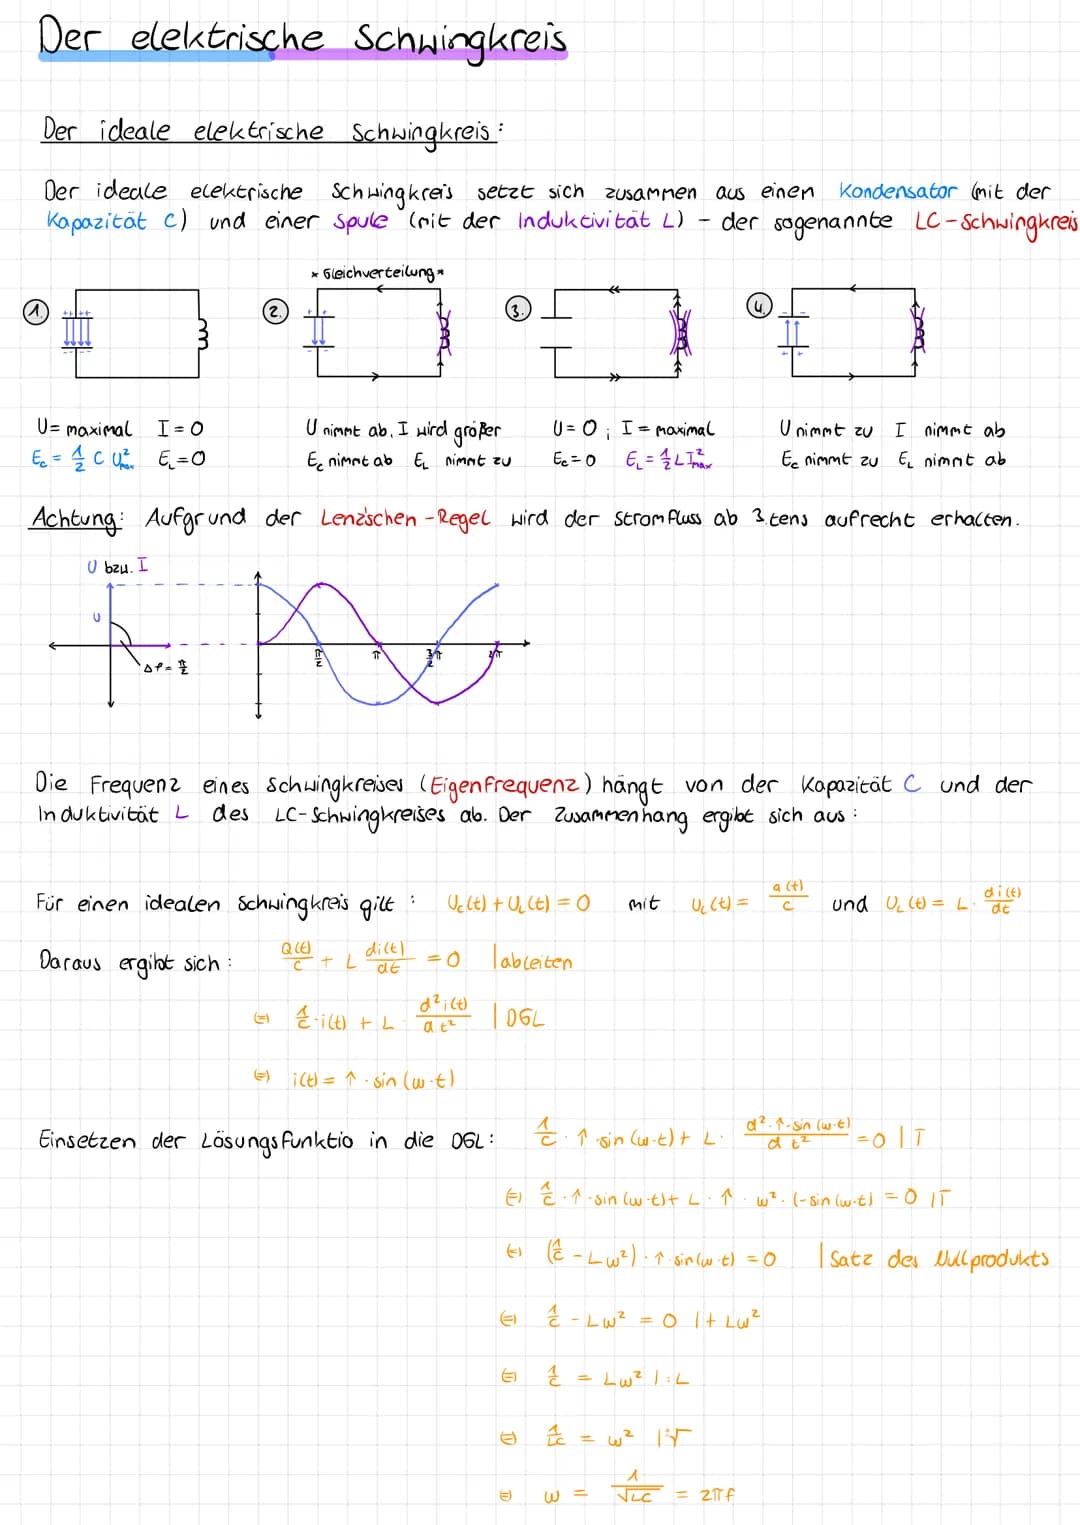 Der elektrische Schwingkreis
Der ideale elektrische Schwingkreis:
Der ideale elektrische Schwingkreis setzt sich zusammen aus einen Kondensator (mit der
Kapazität C) und einer Spule (mit der Induktivität L) - der sogenannte LC-Schwingkreis
* Gleichverteilung *
1. 2. 3. 4.
U = maximal I = 0
E_C = 1/2 C U²max E_L = 0
U nimmt ab, I wird größer
E_C nimmt ab E_L nimmt zu
U = 0 ; I = maximal
E_C = 0 E_L = 1/2 L I²max
U nimmt zu I nimmt ab
E_C nimmt zu E_L nimmt ab
Achtung: Aufgrund der Lenz'schen-Regel wird der Stromfluss ab 3.tens aufrecht erhalten.
U bzw. I
U
Δφ = π/2
π/2 π 3/2 π 2π
Die Frequenz eines Schwingkreises (Eigenfrequenz) hängt von der Kapazität C und der
Induktivität L des LC-Schwingkreises ab. Der Zusammenhang ergibt sich aus:
Für einen idealen Schwingkreis gilt: U_C(t) + U_L(t) = 0 mit U_C(t) = Q(t)/C und U_L(t) = L · di(t)/dt
Daraus ergibt sich: Q(t)/C + L di(t)/dt = 0 | ableiten
(=) 1/C · i(t) + L · d²i(t)/dt² | DGL
(=) i(t) = ↑ · sin(ω·t)
Einsetzen der Lösungsfunktio in die DGL: 1/C · ↑ · sin(ω·t) + L · d²·↑·sin(ω·t)/dt² = 0 | T
(=) 1/C · ↑ · sin(ω·t) + L · ↑ · ω² · (-sin(ω·t) = 0 | T
(=) (1/C - Lω²) · ↑ · sin(ω·t) = 0 | Satz des Nullprodukts
(=) 1/C - Lω² = 0 | + Lω²
(=) 1/C = Lω² | : L
(=) 1/LC = ω² | √
(=) ω = 1/√LC = 2πf